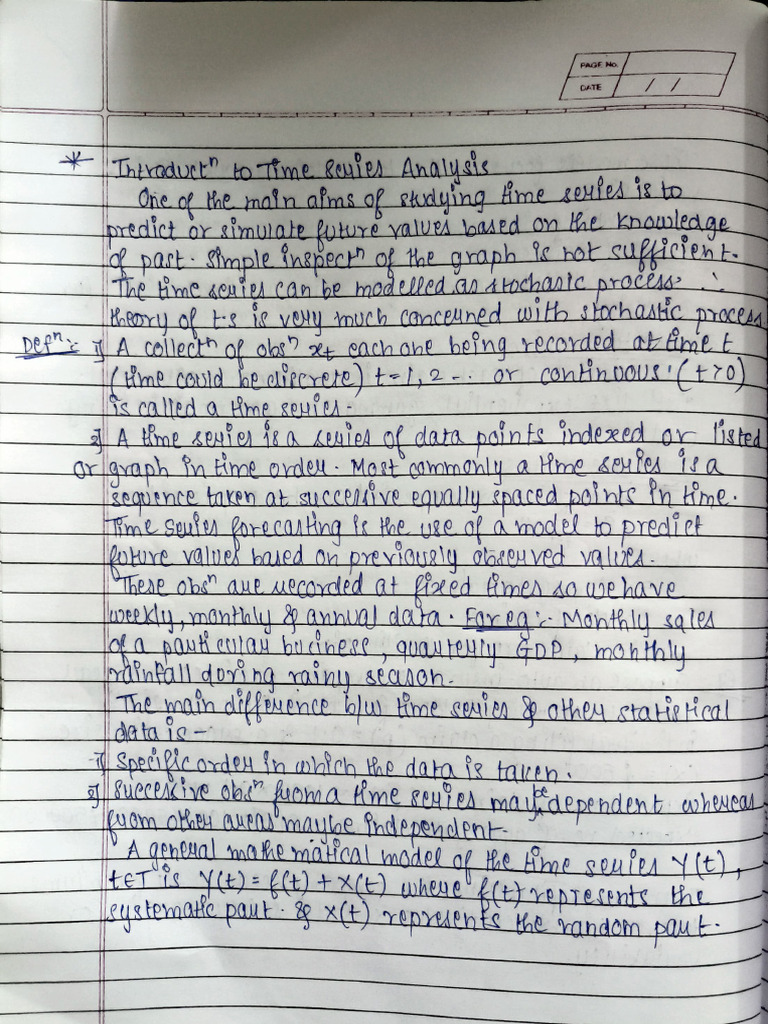 PAGE No.
DATE / /
* Introductⁿ to Time Series Analysis
One of the main aims of studying time series is to
predict or simulate future values based on the knowledge
of past. Simple inspectⁿ of the graph is not sufficient.
The time series can be modelled as stochasic process. ∴
theory of t.s is very much concerned with stochastic process
Defⁿ :- 1) A collectⁿ of obsⁿ xt each one being recorded at time t
(time could be discrete) t=1, 2 -.. or continuous (t>0)
is called a time series.
2) A time series is a series of data points indexed or listed
or graph in time order. Most commonly a time series is a
sequence taken at successive equally spaced points in time.
Time series forecasting is the use of a model to predict
future values based on previously observed values.
These obsⁿ are recorded at fixed times so we have
weekly, monthly & annual data. For eg :- Monthly sales
of a particular business, quarterly GDP, monthly
rainfall during rainy season.
The main difference b/w time series & other statistical
data is -
1) Specific order in which the data is taken.
2) Successive obsⁿ from a time series may be dependent whereas
from other areas maybe independent.
A general mathematical model of the time series Y(t),
t∈T is Y(t) = f(t) + X(t) where f(t) represents the
systematic part. & X(t) represents the random part.